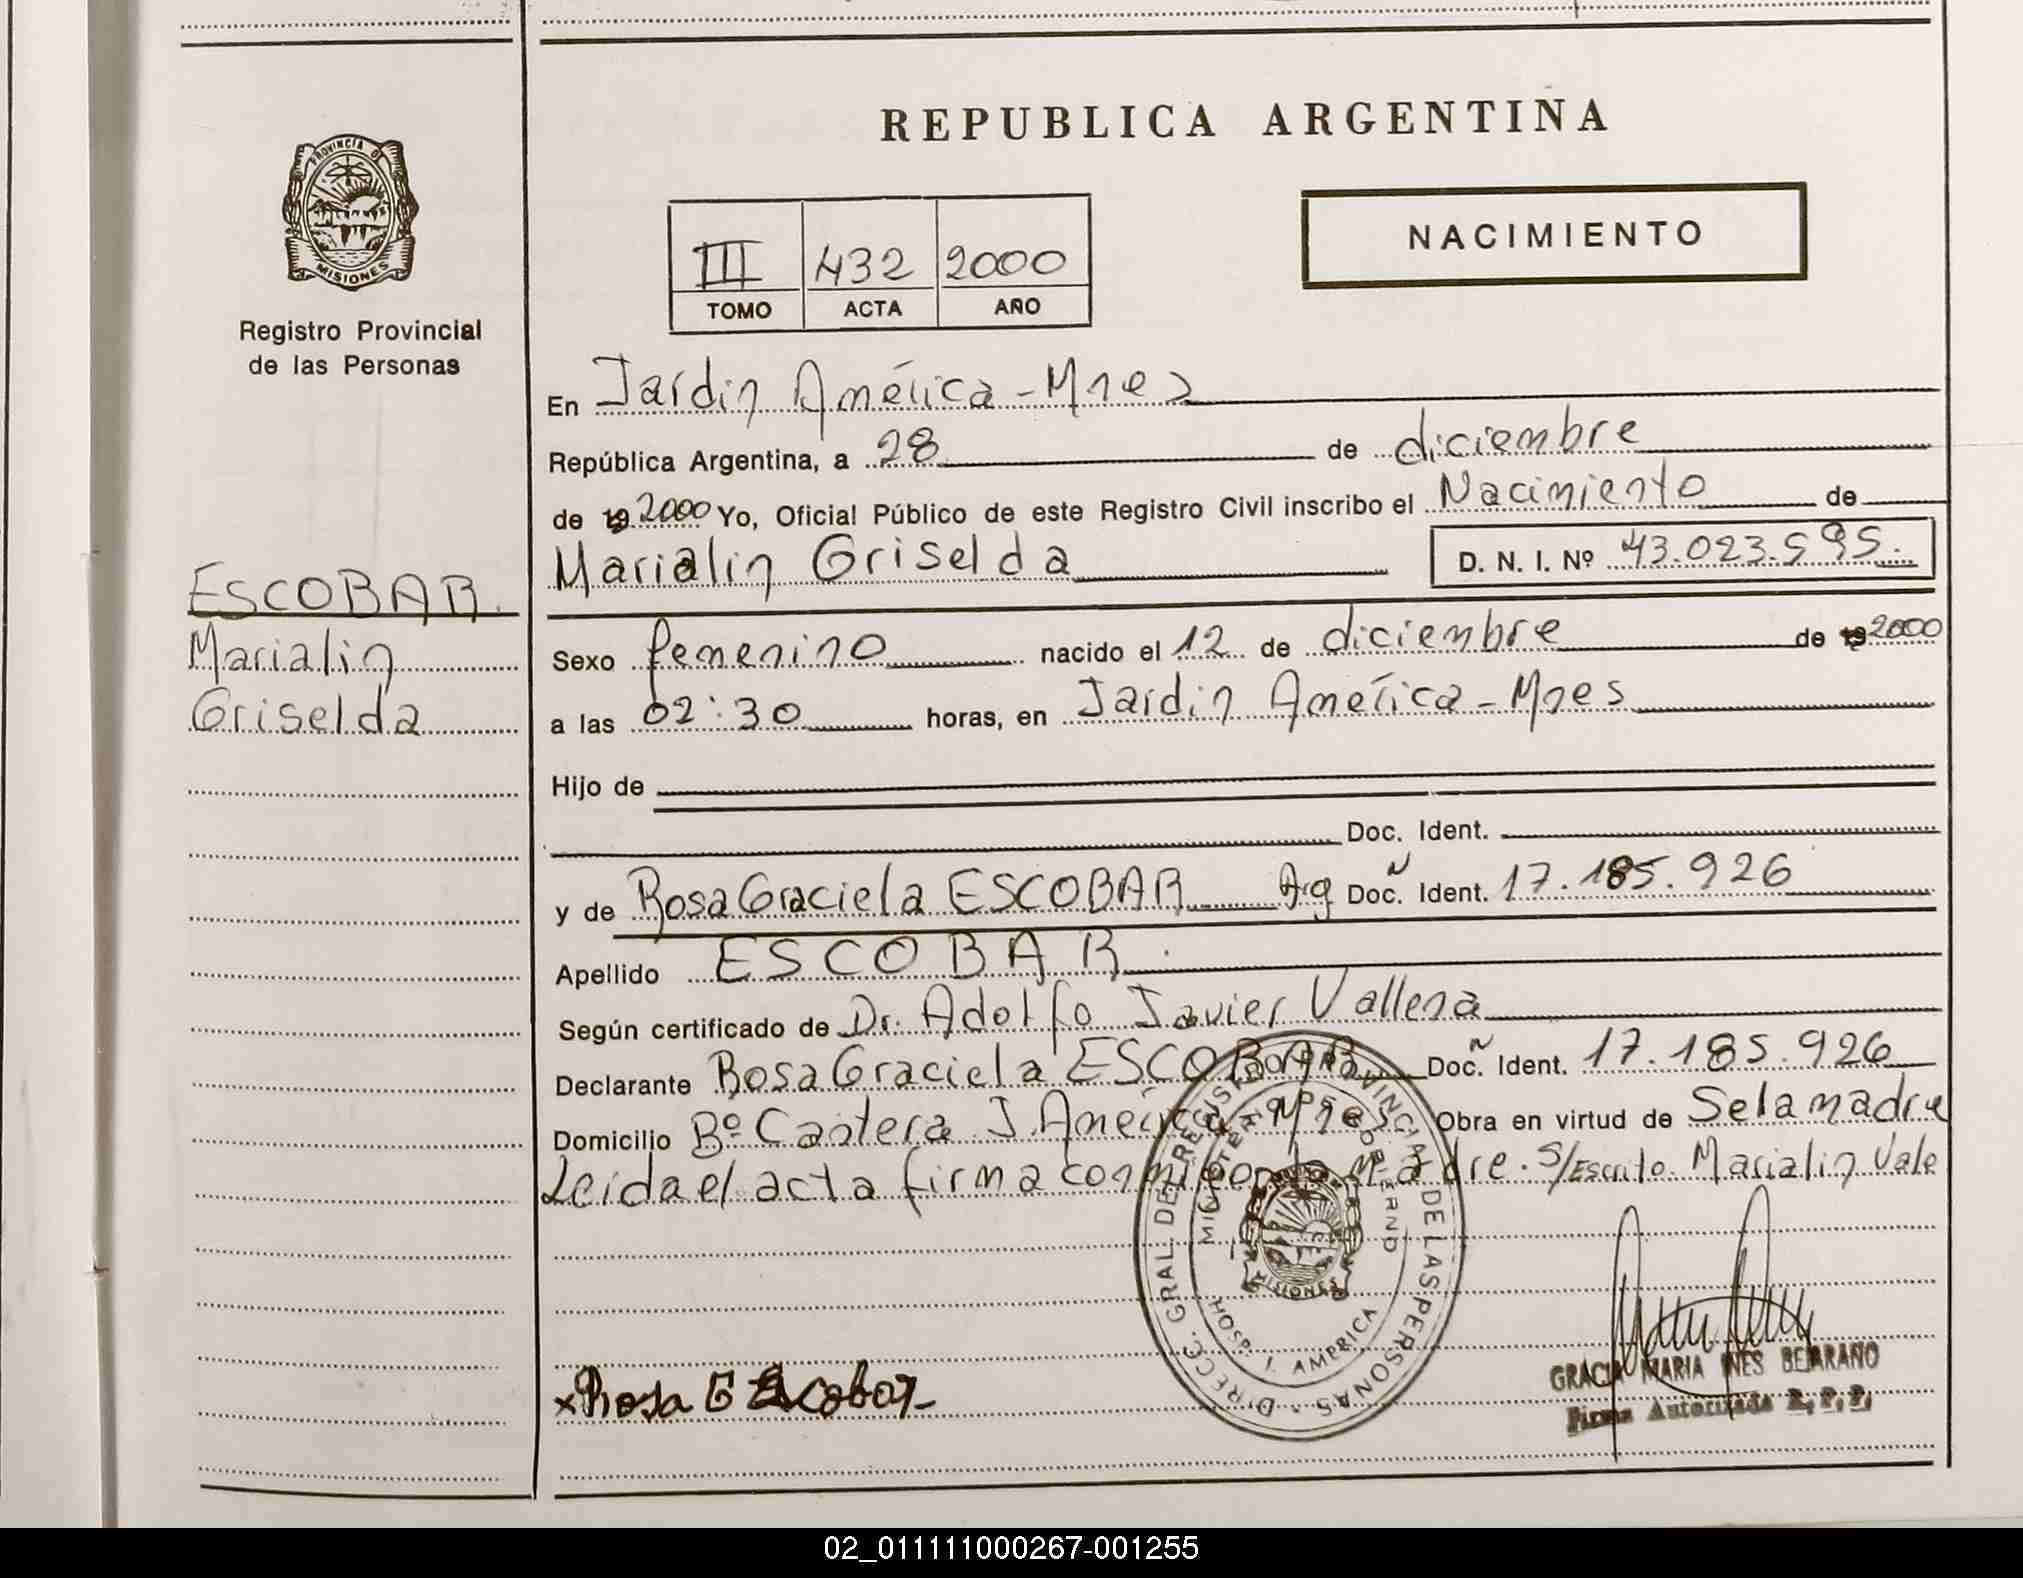 REPUBLICA ARGENTINA
PROVINCIA D
MISIONES
Registro Provincial
de las Personas
III 432 2000
TOMO ACTA AÑO
NACIMIENTO
En Jardin América - Mnes
República Argentina, a 28 de diciembre
de 19 2000 Yo, Oficial Público de este Registro Civil inscribo el Nacimiento de
Marialin Griselda D. N. I. Nº 43.023.595.
ESCOBAR.
Marialin
Griselda
Sexo femenino nacido el 12 de diciembre de 19 2000
a las 02:30 horas, en Jardin América - Mnes
Hijo de
Doc. Ident.
y de Rosa Graciela ESCOBAR Arg Doc. N Ident. 17.185.926
Apellido ESCOBAR
Según certificado de Dr. Adolfo Javier
Declarante Rosa Graciela ESCOBAR Doc. N Ident. 17.185.926
Domicilio Bº Cantera J. América Mnes Obra en virtud de Se la madre
Leida el acta firma conmigo la Madre. S/Escrito. Marialin Vale
DIRECC. GRAL. DE REGISTRO PROVINCIAL DE LAS PERSONAS
MINISTERIO DE GOBIERNO
MISIONES
HOSP. J. AMERICA
x Rosa G Escobar
GRACIA MARIA INES BEJARANO
Firma Autorizada R. P. P.
02_011111000267-001255